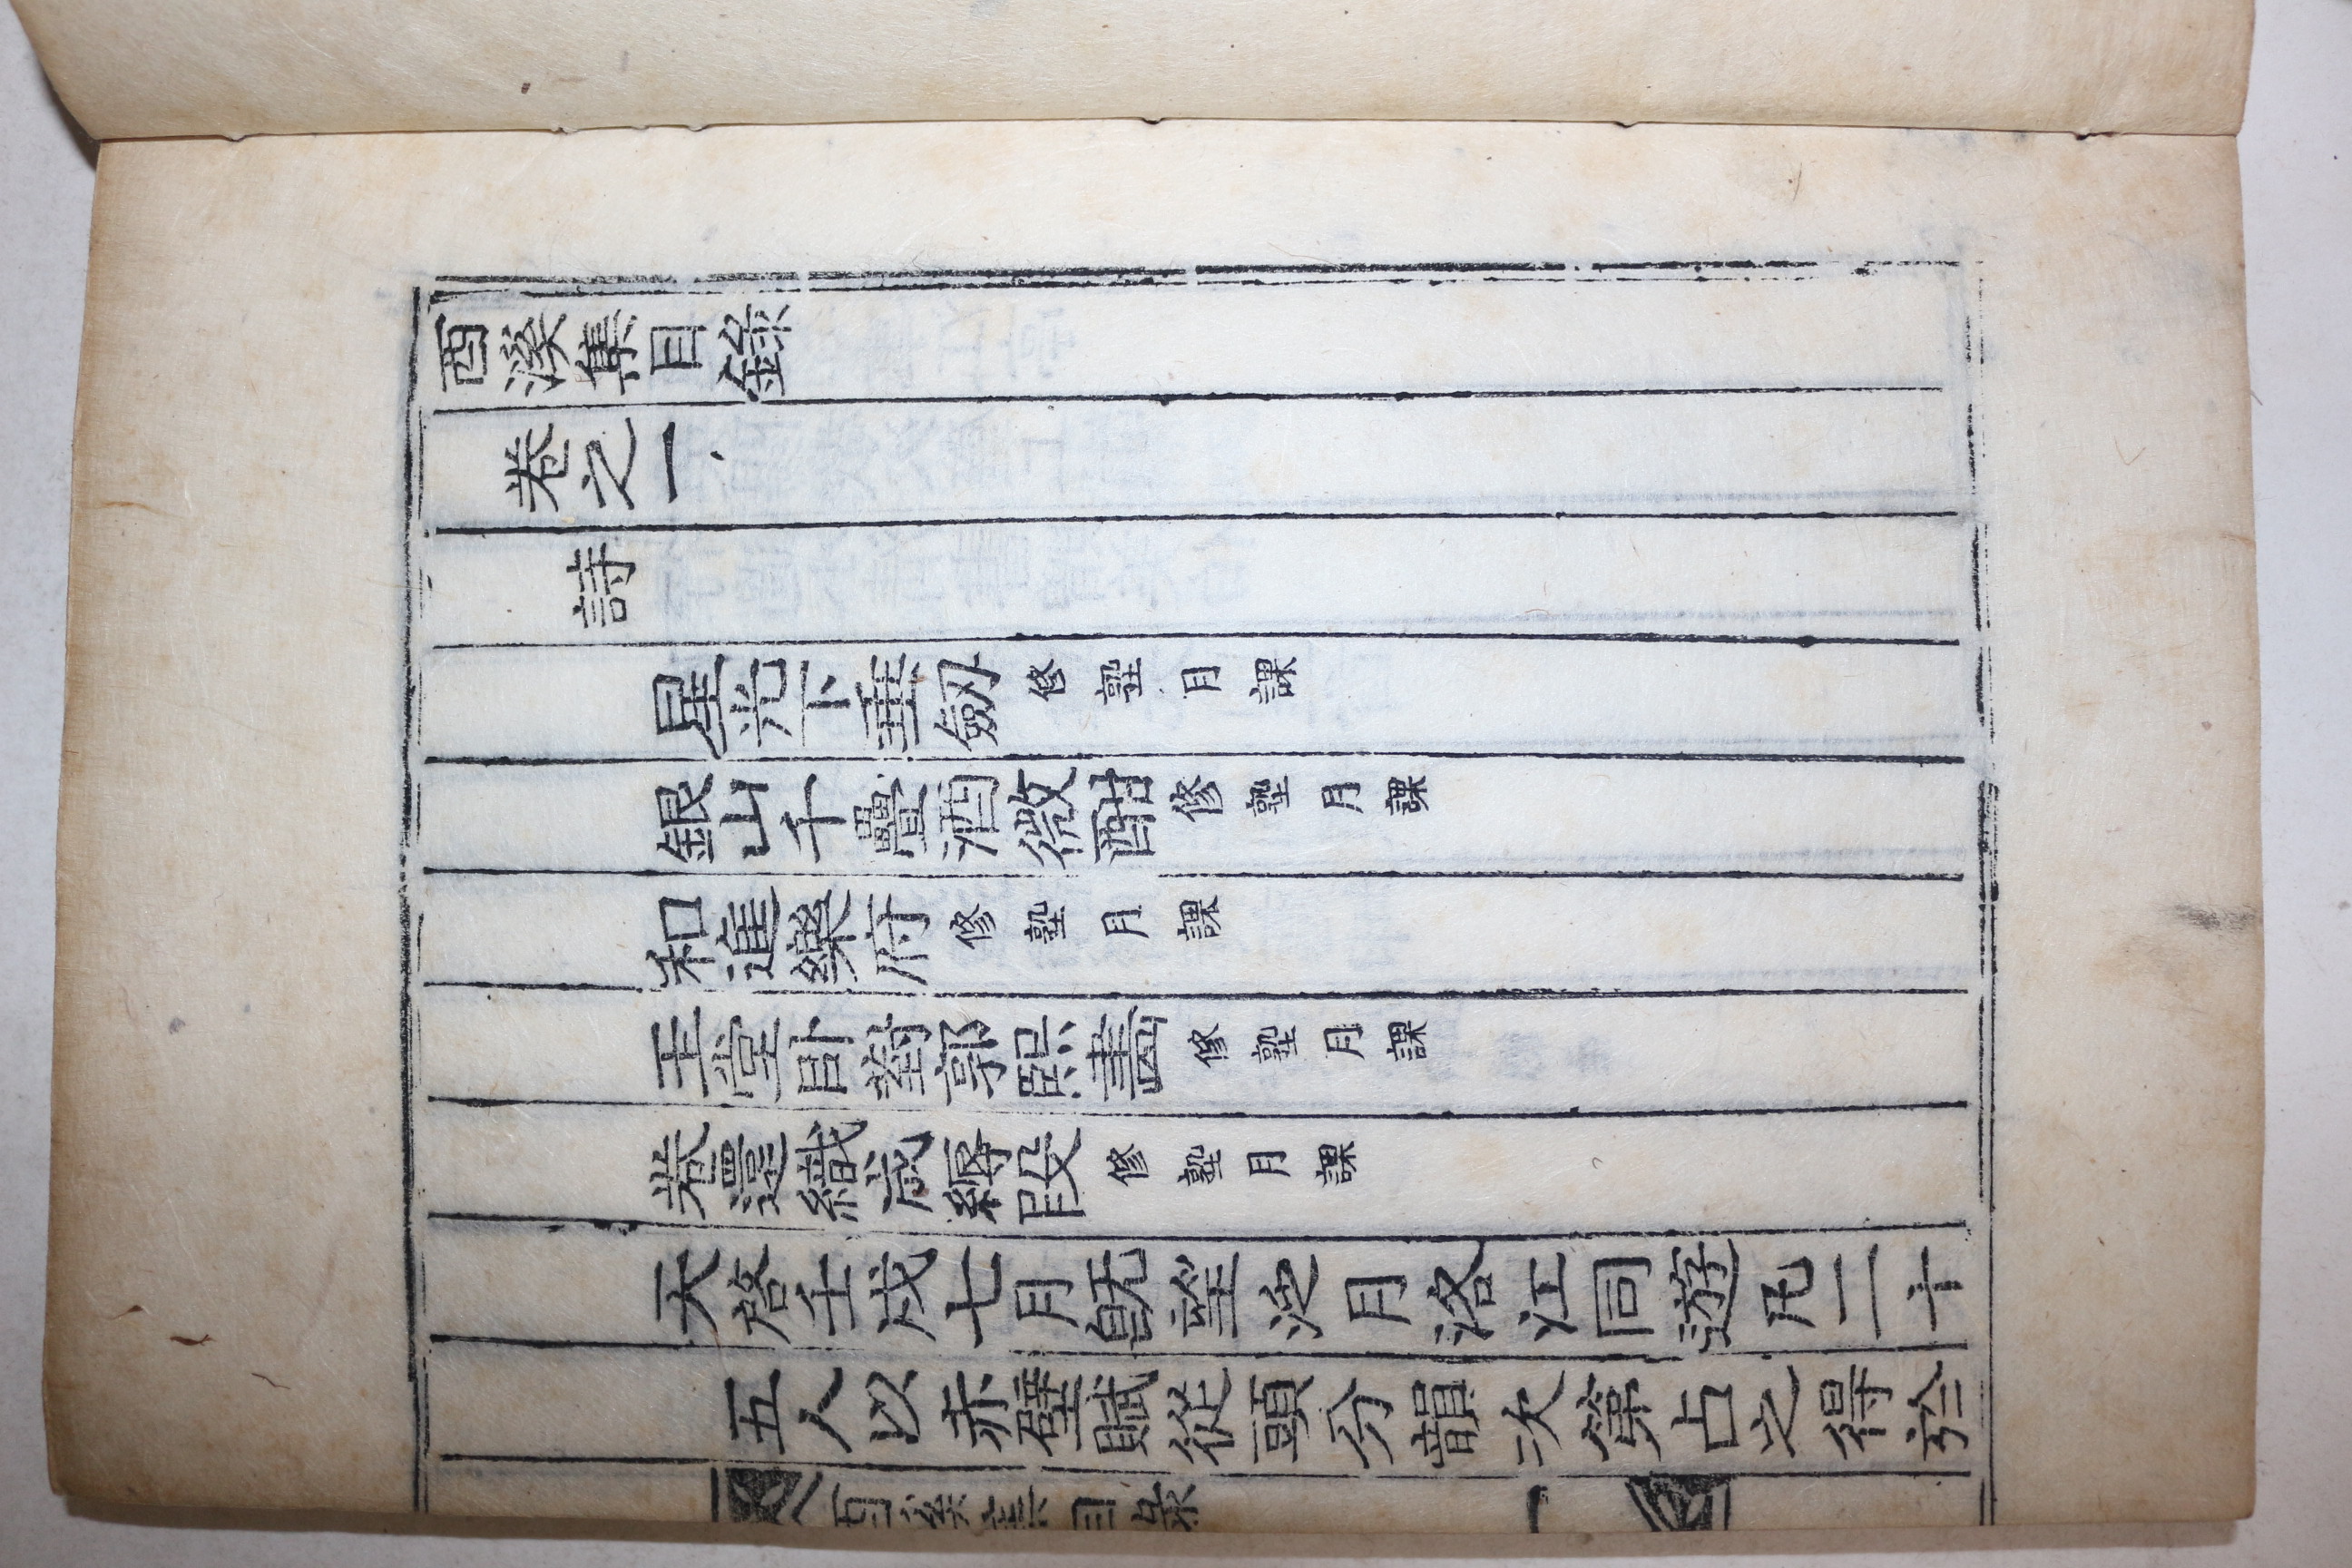 西溪集目錄
卷之一
詩
星光下垂劒 修塾月課
銀山千疊酒微酣 修塾月課
和進樂府 修塾月課
玉堂卧對郭熙畵 修塾月課
卷還織成縟段 修塾月課
天啓壬戌七月旣望泛月洛江同遊凡二十
五人以赤壁賦從頭分韻次第占之得於
西溪集目录 一